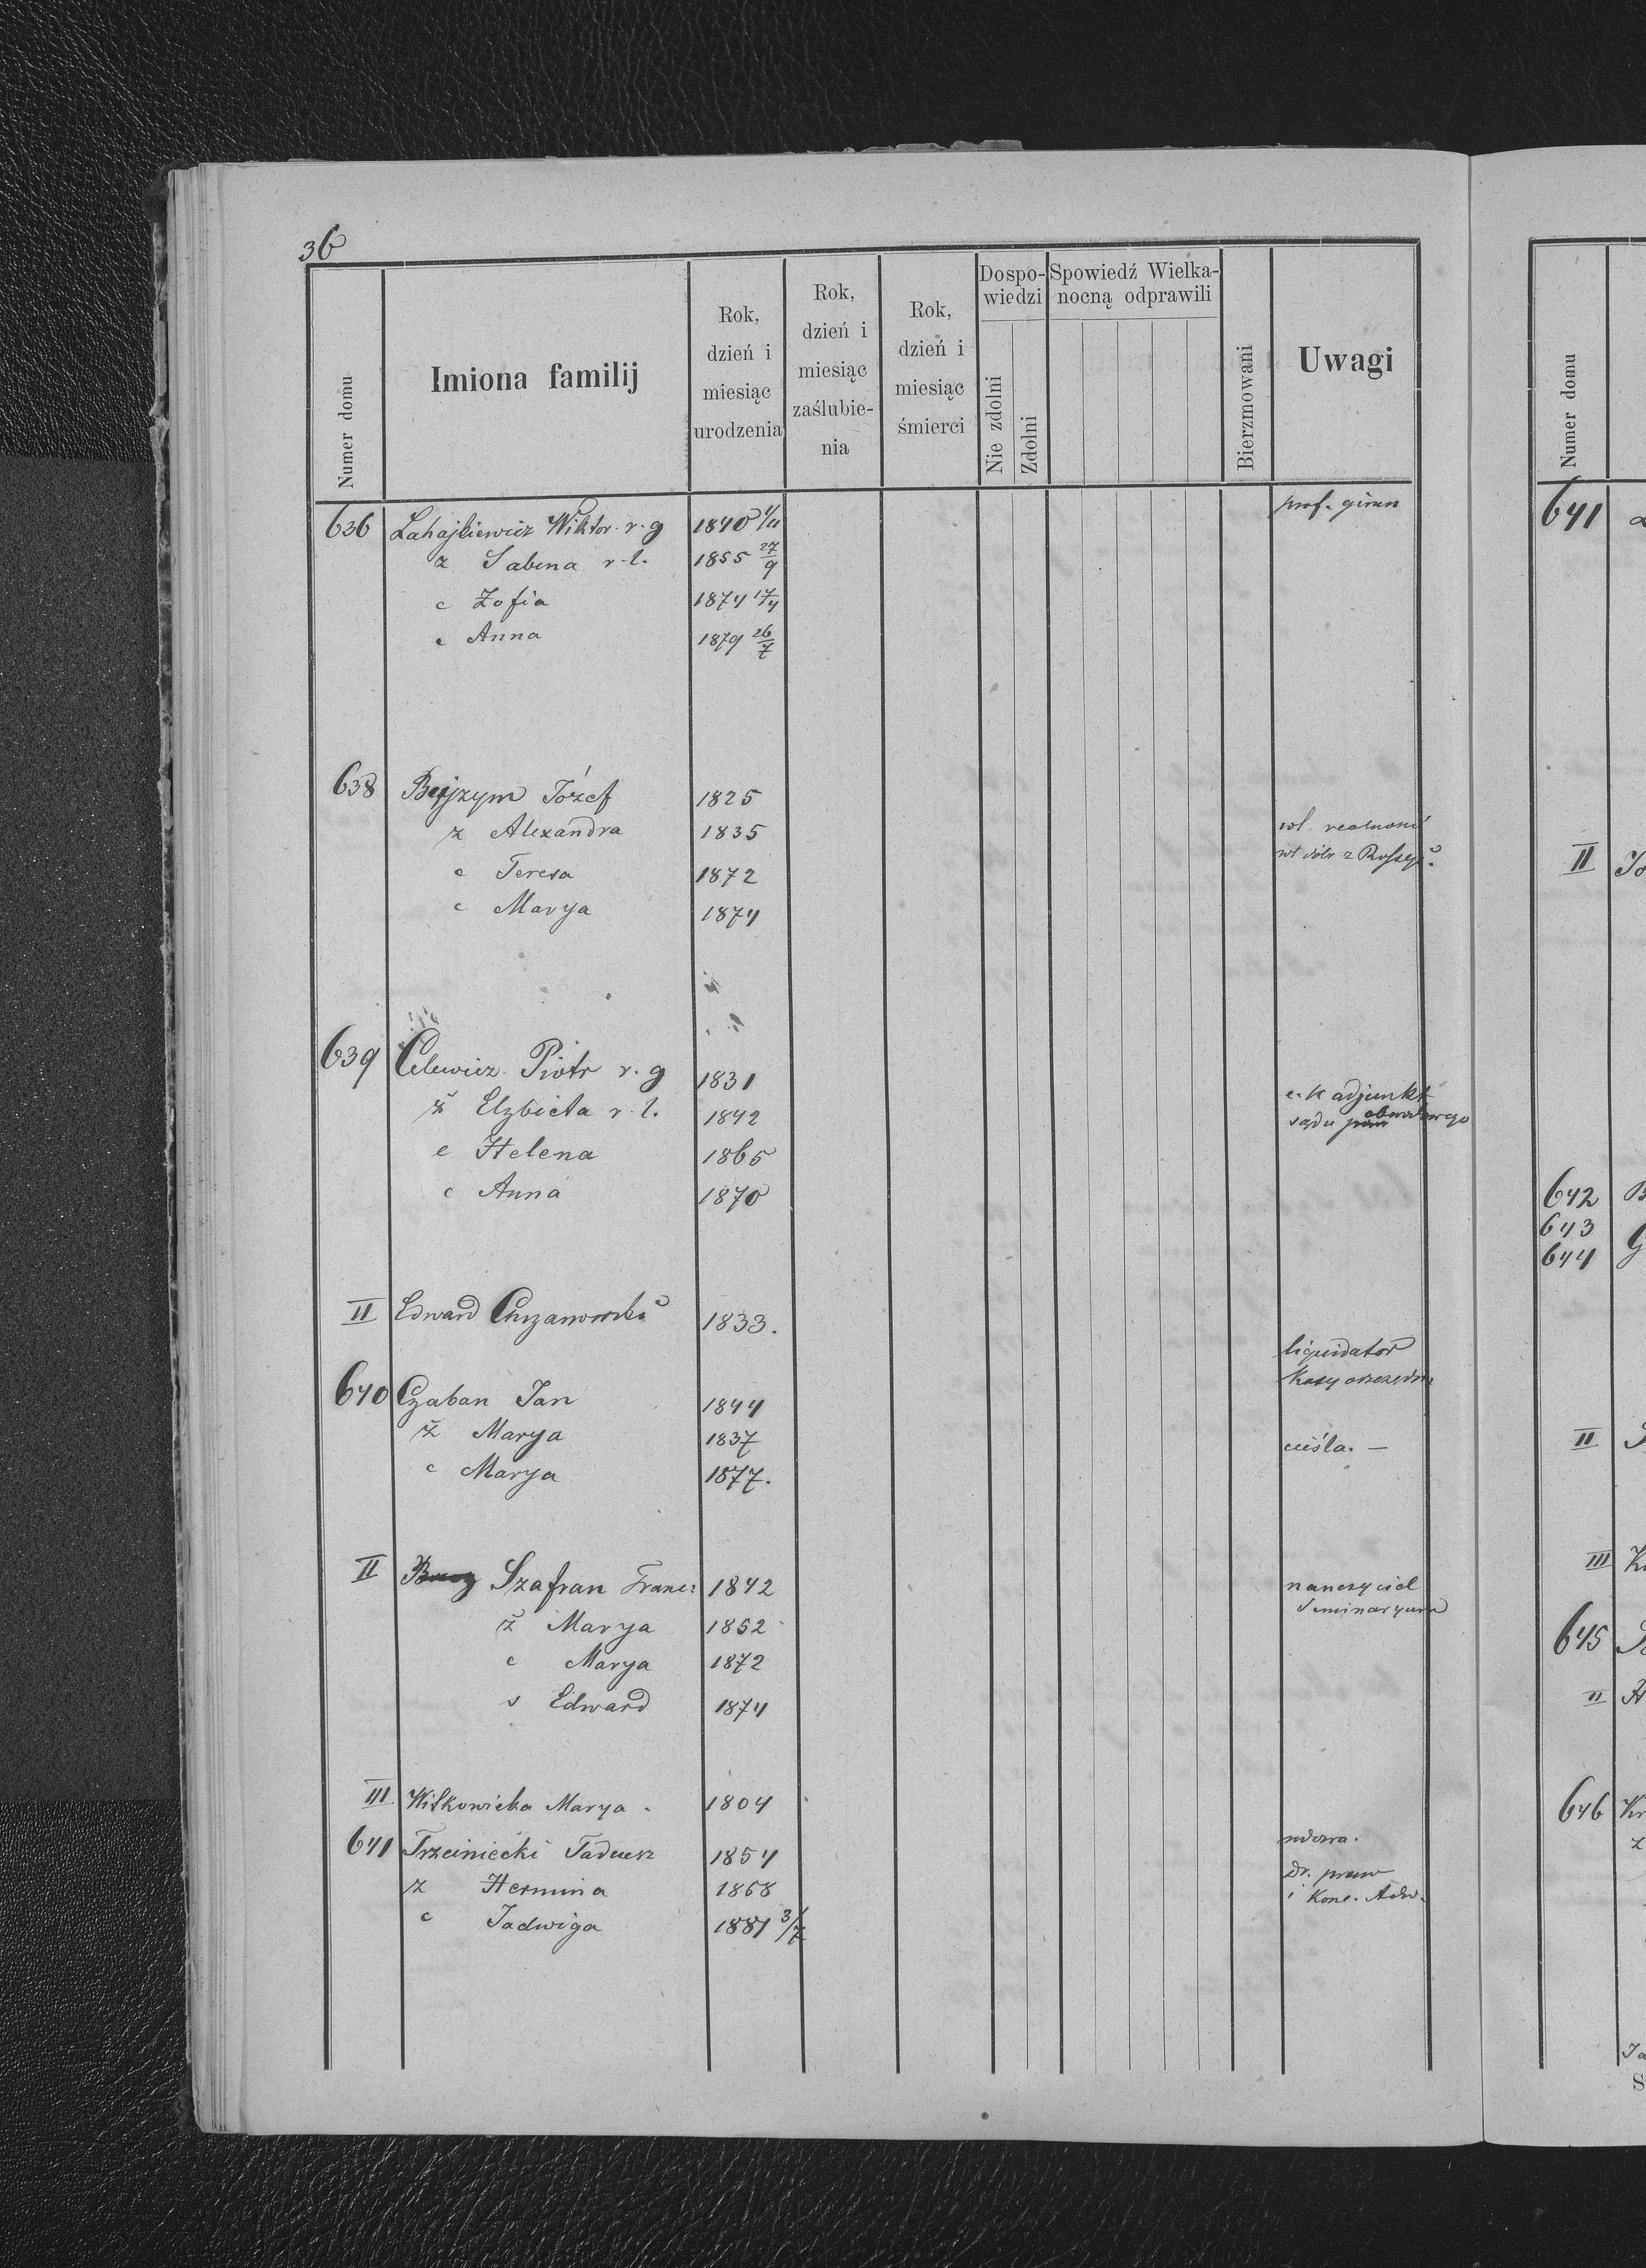 36
Numer domu
Imiona familij
Rok,
dzień i
miesiąc
urodzenia
Rok,
dzień i
miesiąc
zaślubie-
nia
Rok,
dzień i
miesiąc
śmierci
Dospo-
wiedzi
Nie zdolni
Zdolni
Spowiedź Wielka-
nocną odprawili
Bierzmowani
Uwagi
Numer domu
636 Lahajkiewicz Wiktor r. g 1840 4/11 prof. gimn
ż Sabina r. l. 1855 27/9
c Zofia 1874 17/4
c Anna 1879 26/7
638 Bejzym Józef 1825
ż Alexandra 1835 wł. realności
c Teresa 1872 wł dóbr z Rossyi
c Marya 1874
639 Celewicz Piotr r. g 1831
ż Elzbieta r. l. 1842 c. k adjunkt
sądu obwodowego
c Helena 1865
c Anna 1870
II Edward Chrzanowski 1833.
liquidator
Kasy oszczędn
640 Czaban Jan 1844
ż Marya 1837 cieśla. —
c Marya 1877.
II Szafran Franc: 1842 nauczyciel
Seminaryum
ż Marya 1852
c Marya 1872
s Edward 1874
III Witkowicka Marya 1804
641 Trzciniecki Tadeusz 1854 wdowa.
ż Hermina 1858 Dr. praw
i Konc. Adw.
c Jadwiga 1881 3/7
641
II Jo
642 B
643
644 G
II S
III K
645
II H
646 Kr
z
Ja
S